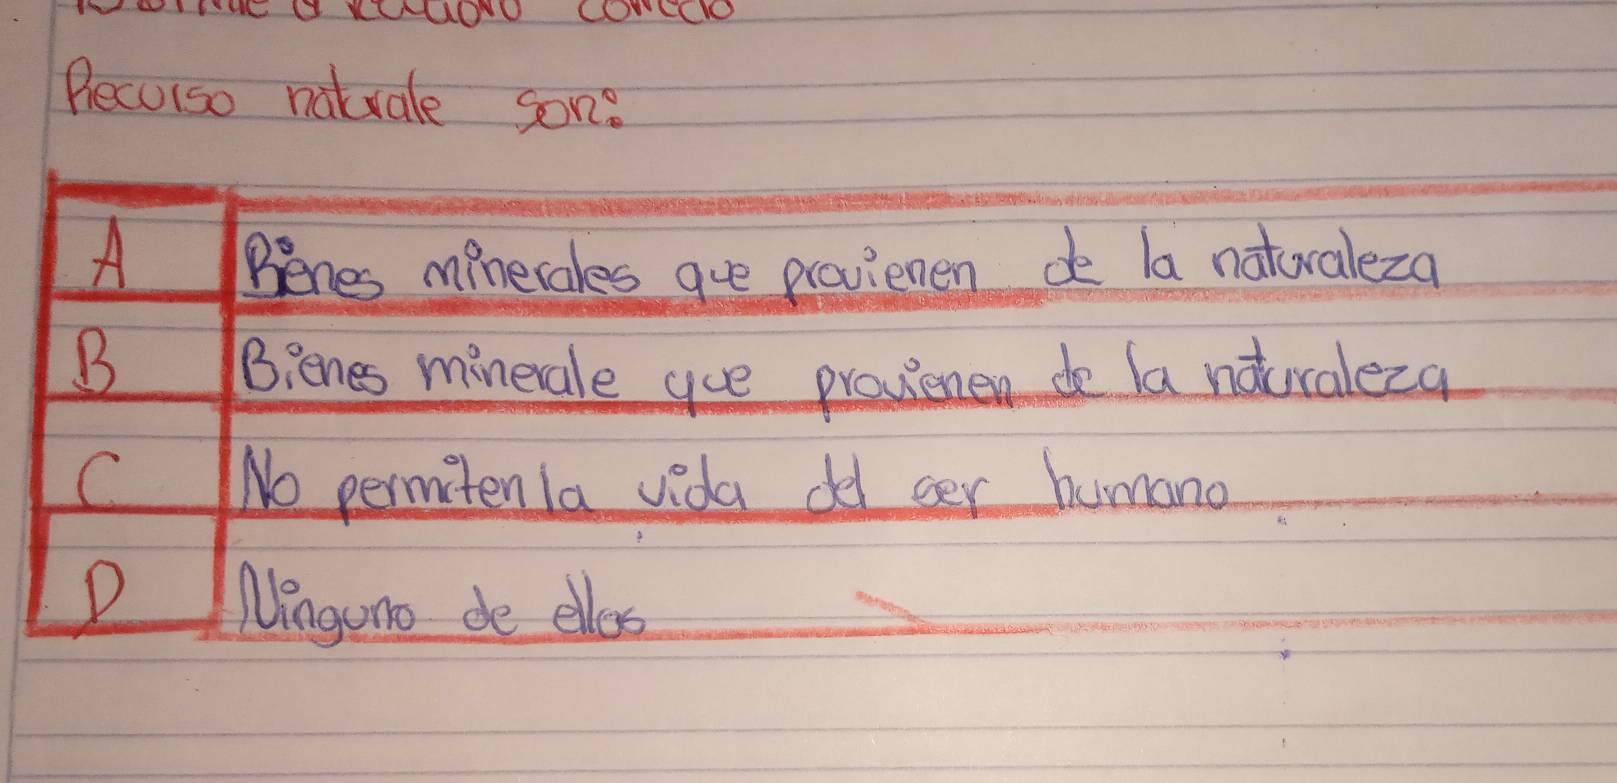 Recurso naturale son:
A Bienes minerales que provienen de la naturaleza
B Bienes minerale que provienen de la naturaleza
C No permiten la vida del ser humano
D Ninguno de ellos